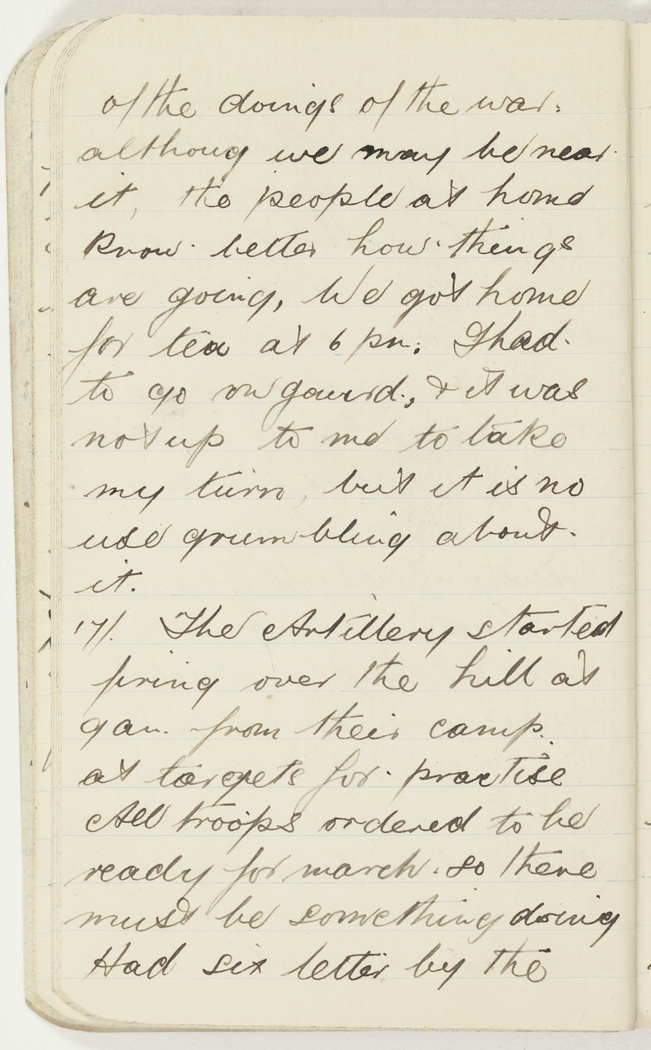 of the doings of the war.
althoug we may be near
it, the people at home
know better how things
are going, We got home
for tea at 6 pm. I had
to go on gaurd, & it was
not up to me to take
my turn, but it is no
use grumbling about
it.
17/. The Artillery started
firing over the hill at
9 am. from their camp.
at targets for practise
All troops ordered to be
ready for march. so there
must be something doing
Had six letter by the